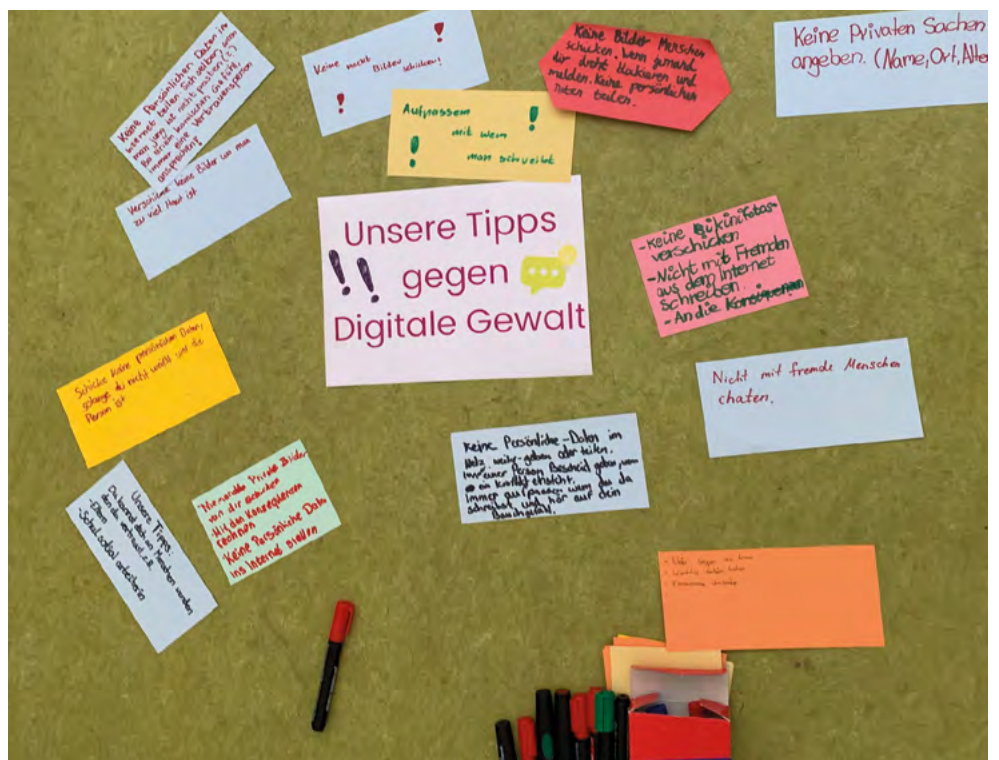 Keine Persönlichen Daten im
Internet teilen. Sich selber, wenn
man jung ist nicht posten (:)
Bei einem komischen Gefühl,
immer eine Vertrauensperson
ansprechen!
Keine nackt Bilder schicken!
!
!
Keine Bilder Menschen
schicken. Wenn jemand
dir droht blockieren und
melden. Keine persönlichen
Daten teilen.
Keine Privaten Sachen
angeben. (Name, Ort, Alter
Aufpassem
mit wem
man schreibt
!
!
Verschicke keine Bilder wo man
zu viel Haut ist
Unsere Tipps
!! gegen
Digitale Gewalt
-Keine Bikinifotos
verschicken
-Nicht mit Fremden
aus dem Internet
schreiben.
-An die Konsiquenzen
Schicke keine persönlichen Daten,
solange du nicht weißt wer die
Person ist
Nicht mit fremde Menschen
chaten.
Keine Persönliche-Daten im
Netz weiter-geben oder teilen.
einer Person Bescheid geben, wenn
ein Konflikt ensteht.
Immer aufpassen wem du da
schreibst, und hör auf dein
Bauchgefühl.
Unsere Tipps:
Du kannst dich an Menschen wenden
den du vertraust z.B.
-Eltern
-Schulsozialarbeiterin
-Niemanden Private Bilder
von dir schicken
-Mit den Konsequenzen
rechnen
-Keine Persönliche Daten
ins Internet stellen